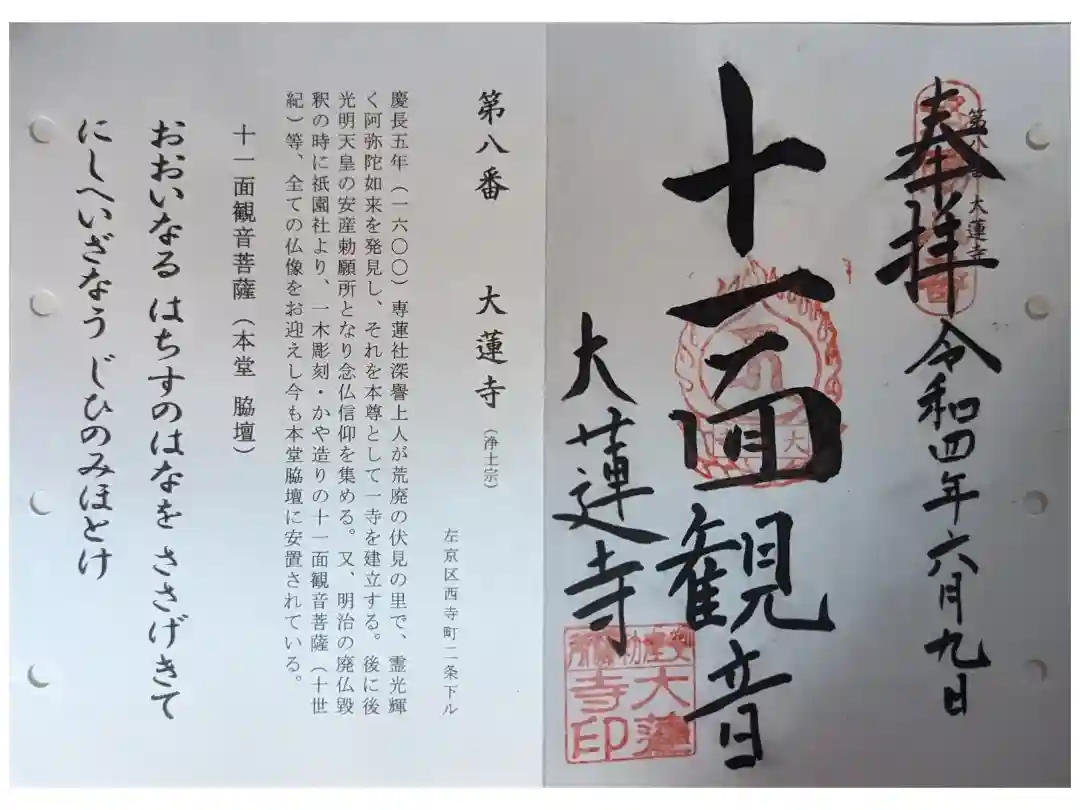 奉拝
第八番 大蓮寺
令和四年六月九日
十一面観音
大蓮寺
大蓮
寺印
第八番 大蓮寺 (浄土宗)
左京区西寺町二条下ル
慶長五年(一六〇〇)専蓮社深譽上人が荒廃の伏見の里で、霊光輝
く阿弥陀如来を発見し、それを本尊として一寺を建立する。後に後
光明天皇の安産勅願所となり念仏信仰を集める。又、明治の廃仏毀
釈の時に祇園社より、一木彫刻・かや造りの十一面観音菩薩(十世
紀)等、全ての仏像をお迎えし今も本堂脇壇に安置されている。
十一面観音菩薩(本堂 脇壇)
おおいなる はちすのはなを ささげきて
にしへいざなう じひのみほとけ